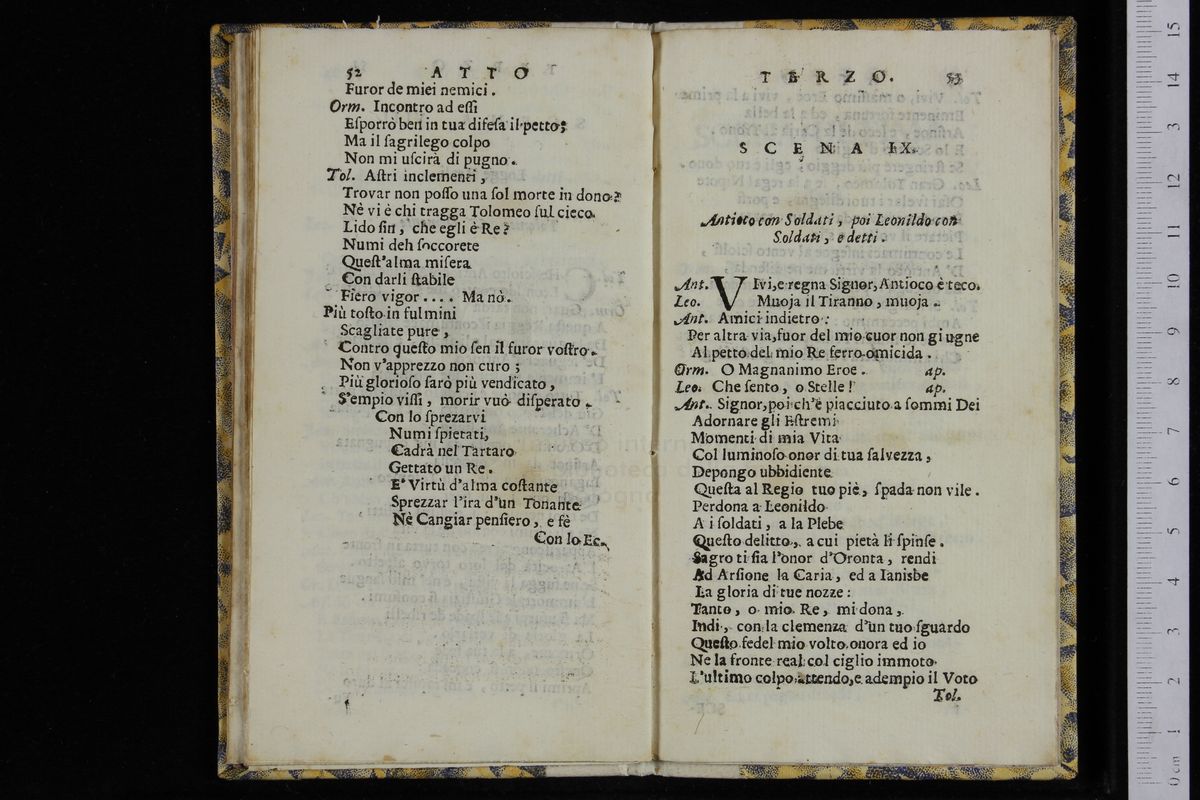 52 ATTO
Furor de miei nemici.
Orm. Incontro ad eſſi
Eſporrò ben in tua difeſa il petto;
Ma il ſagrilego colpo
Non mi uſcirà di pugno.
Tol. Aſtri inclementi,
Trovar non poſſo una ſol morte in dono?
Nè vi è chi tragga Tolomeo ſul cieco
Lido ſin, che egli è Re?
Numi deh ſoccorete
Queſt'alma miſera
Con darli ſtabile
Fiero vigor.... Ma nò.
Più toſto in fulmini
Scagliate pure,
Contro queſto mio ſen il furor voſtro.
Non v'apprezzo non curo;
Più glorioſo ſarò più vendicato,
S'empio viſſi, morir vuò diſperato.
Con lo ſprezarvi
Numi ſpietati,
Cadrà nel Tartaro
Gettato un Re.
E' Virtù d'alma coſtante
Sprezzar l'ira d'un Tonante
Nè Cangiar penſiero, e fè
Con lo Ec.
TERZO. 53
SCENA IX.
Antioco con Soldati, poi Leonildo con
Soldati, e detti.
Ant. VIvi, e regna Signor, Antioco è teco.
Leo. Muoja il Tiranno, muoja.
Ant. Amici indietro:
Per altra via, fuor del mio cuor non giugne
Al petto del mio Re ferro omicida.
Orm. O Magnanimo Eroe. ap.
Leo. Che ſento, o Stelle! ap.
Ant. Signor, poi ch'è piacciuto a ſommi Dei
Adornare gli Eſtremi
Momenti di mia Vita
Col luminoſo onor di tua ſalvezza,
Depongo ubbidiente
Queſta al Regio tuo piè, ſpada non vile.
Perdona a Leonildo
A i ſoldati, a la Plebe
Queſto delitto, a cui pietà li ſpinſe.
Sagro ti ſia l'onor d'Oronta, rendi
Ad Arſione la Caria, ed a Ianisbe
La gloria di tue nozze:
Tanto, o mio Re, mi dona,
Indi, con la clemenza d'un tuo ſguardo
Queſto fedel mio volto onora ed io
Ne la fronte real col ciglio immoto
L'ultimo colpo attendo, e adempio il Voto
Tol.